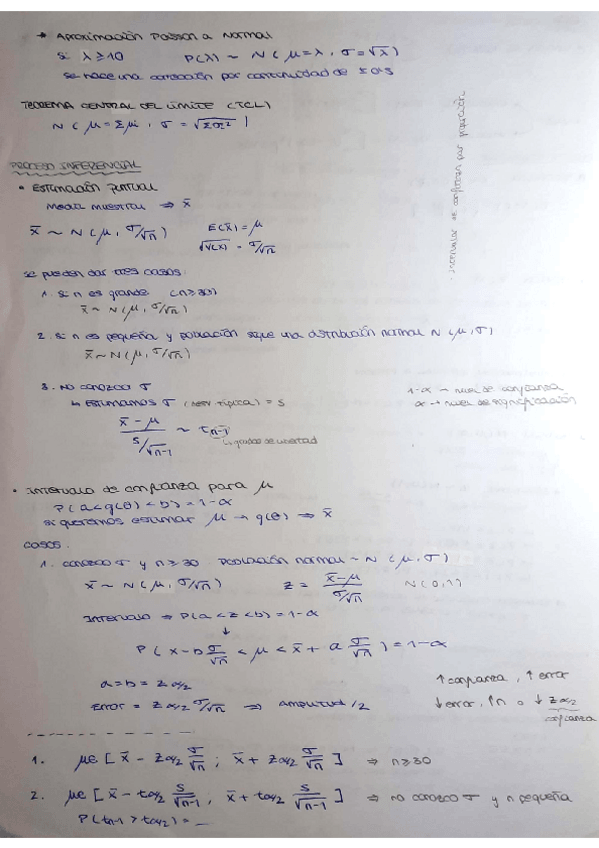 → Aproximación Poisson a Normal
si λ ≥ 10 P(λ) ~ N (μ = λ, σ = √λ)
se hace una corrección por continuidad de ± 0'5
TEOREMA CENTRAL DEL LÍMITE (TCL)
N ( μ = Σμi , σ = √Σσi² )
PROCESO INFERENCIAL
• Estimación puntual
Media muestral ⇒ x̄
x̄ ~ N (μ, σ/√n) E(x̄) = μ
√V(x̄) = σ/√n
se pueden dar tres casos:
1. si n es grande (n ≥ 30)
x̄ ~ N (μ, σ/√n)
2. si n es pequeña y población sigue una distribución normal N (μ, σ)
x̄ ~ N (μ, σ/√n)
3. No conozco σ
↳ Estimamos σ (desv. típica) = s
(x̄ - μ) / (s/√n-1) ~ tn-1
↳ grados de libertad
1-α → nivel de confianza
α → nivel de significación
· Intervalos de confianza por
• Intervalo de confianza para μ
P(a < g(θ) < b) = 1-α
si queremos estimar μ → g(θ) ⇒ x̄
casos:
1. conozco σ y n ≥ 30 Población normal ~ N (μ, σ)
x̄ ~ N (μ, σ/√n) z = (x̄ - μ) / (σ/√n) N (0,1)
Intervalo ⇒ P(a < z < b) = 1-α
↓
P ( x - b σ/√n < μ < x̄ + a σ/√n ) = 1-α
a = b = z α/2
Error = z α/2 σ/√n ⇒ Amplitud/2
↑ confianza, ↑ error
↓ error, ↑n o ↓ z α/2
confianza
1. μ∈ [ x̄ - z α/2 σ/√n ; x̄ + z α/2 σ/√n ] ⇒ n ≥ 30
2. μ∈ [ x̄ - t α/2 s/√n-1 , x̄ + t α/2 s/√n-1 ] ⇒ no conozco σ y n pequeña
P(tn-1 > t α/2) = _